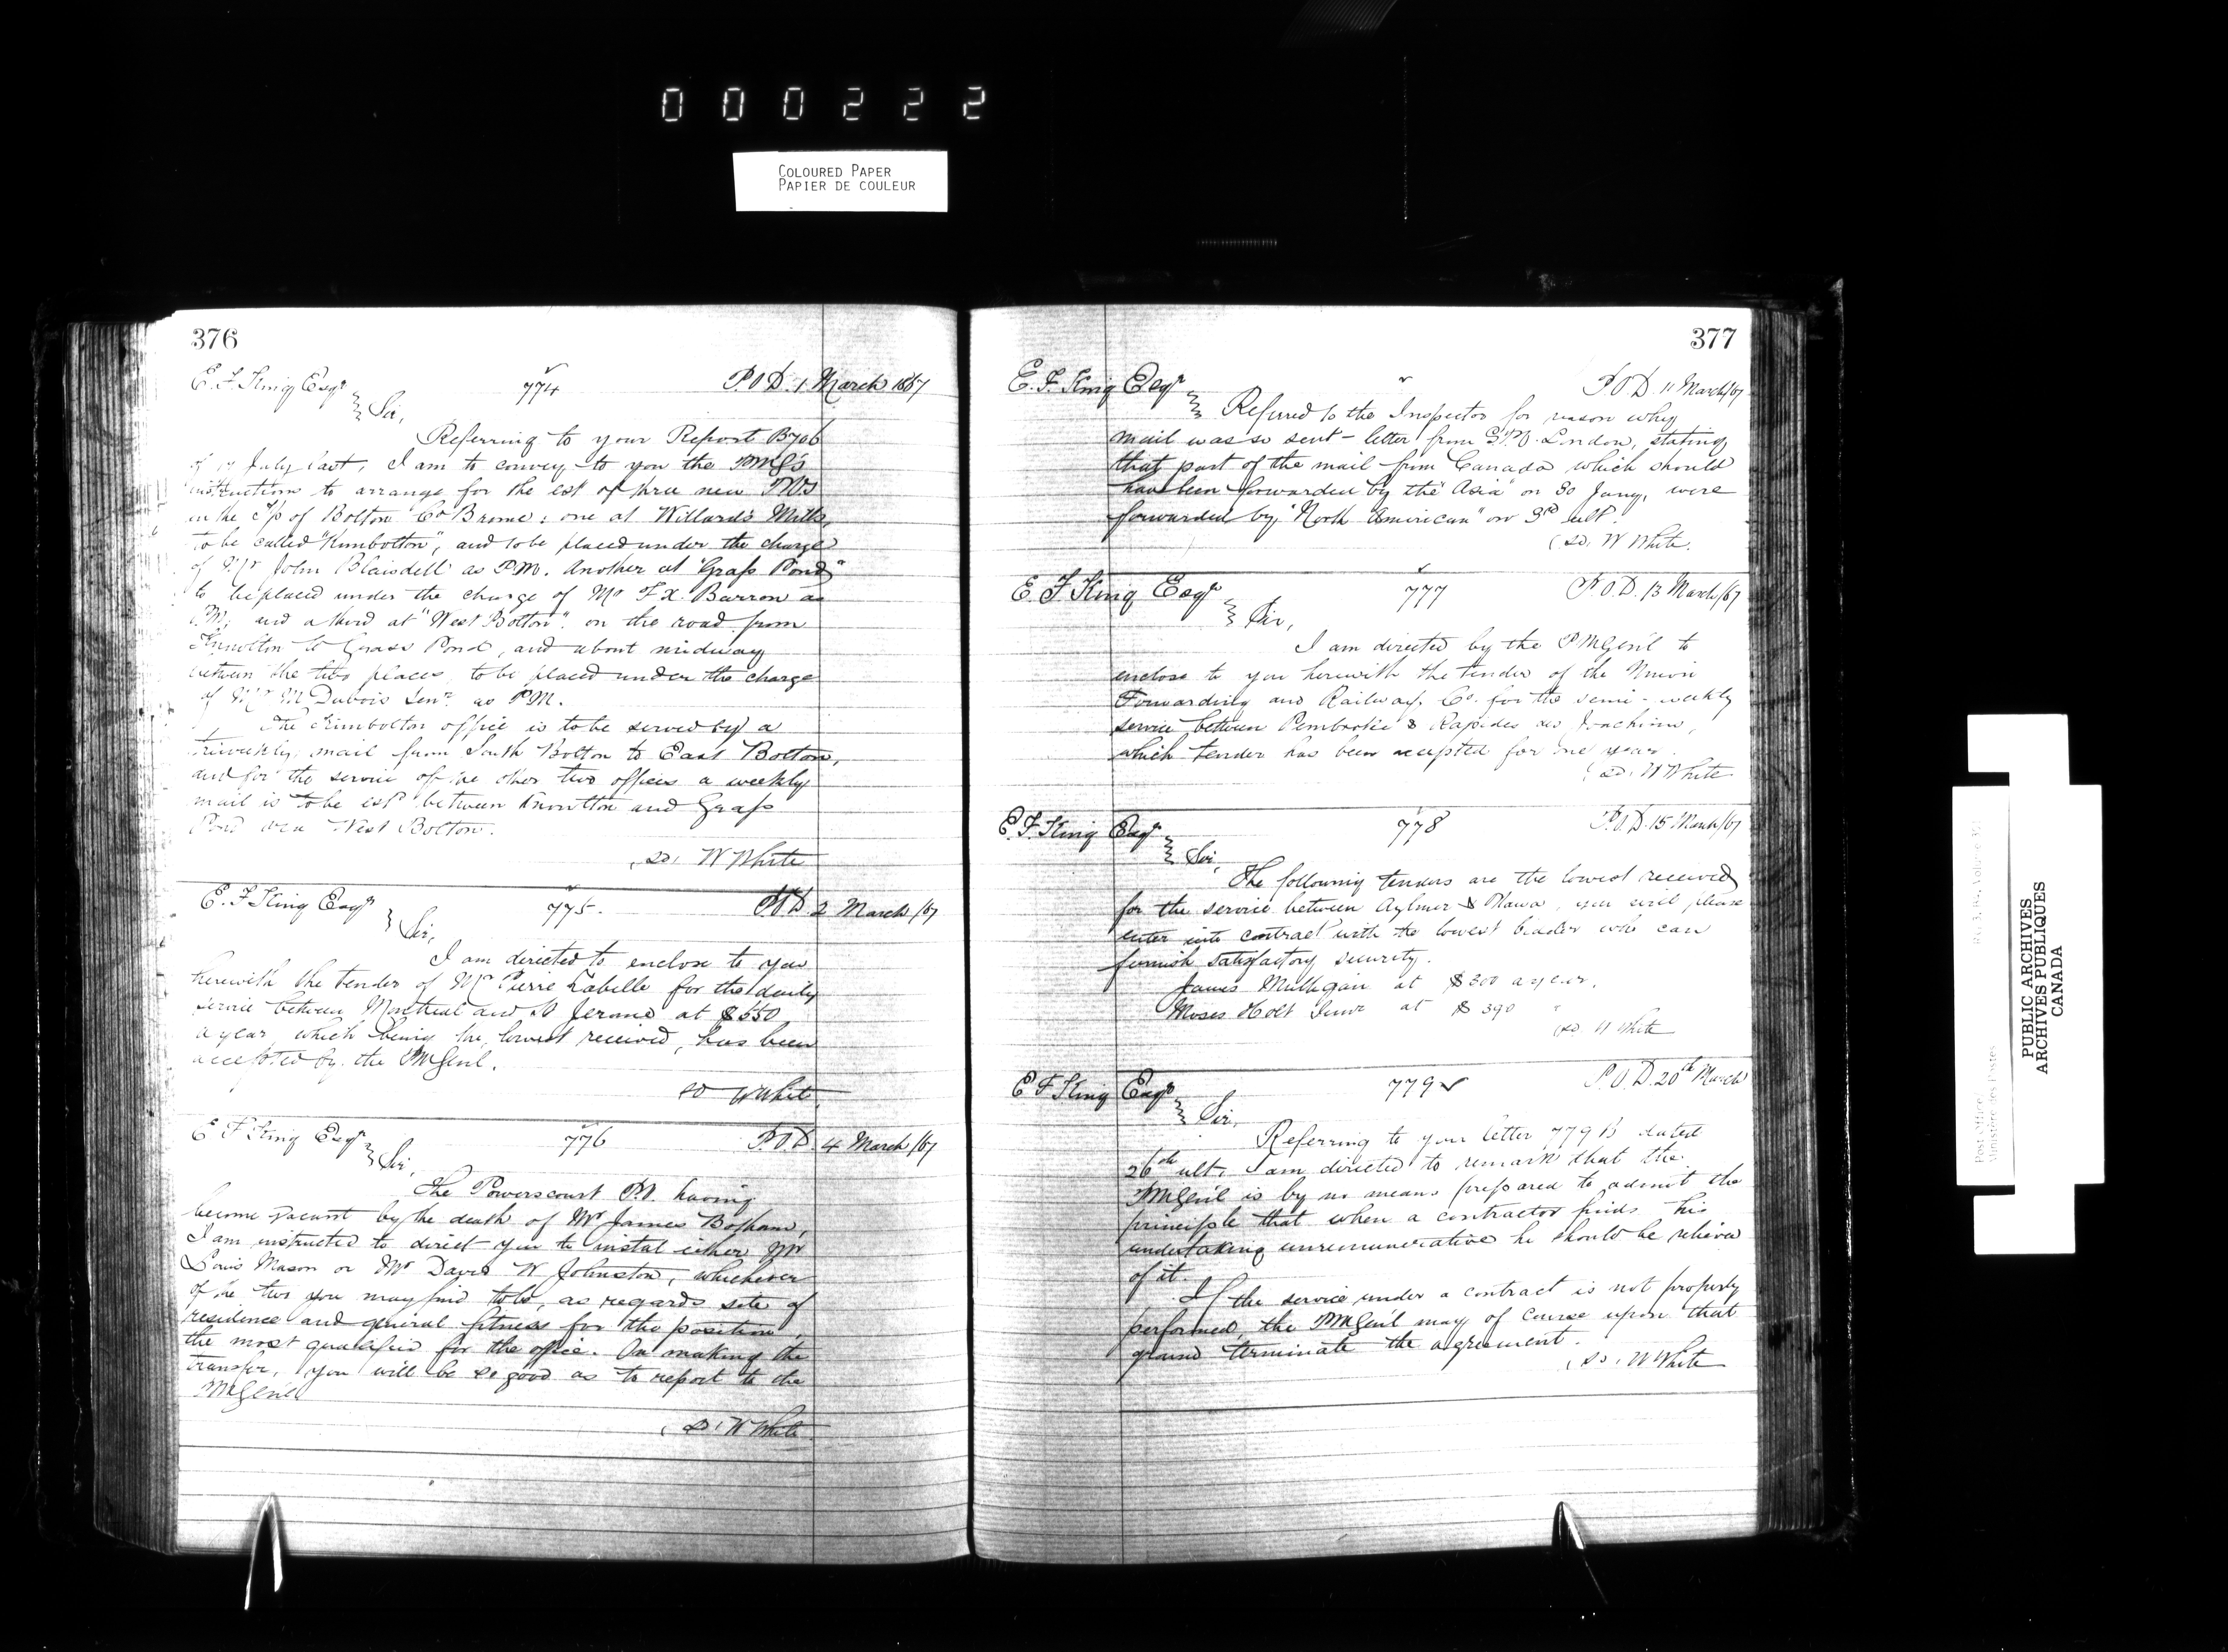 000222
COLOURED PAPER
PAPIER DE COULEUR
376
E. F. King Esqr 774 P.O.D. 1 March 1867
Sir,
Referring to your Report B706
of 17 July last, I am to convey to you the PMG's
instructions to arrange for the est of three new POs
in the T/p of Bolton Co Brome: one at Willard's Mills,
to be called "Kimbolton", and to be placed under the charge
of Mr John Blaisdell as P.M. Another at "Grass Pond"
to be placed under the charge of Mr F. X. Barron as
P.M; and a third at "West Bolton" on the road from
Knowlton to Grass Pond, and about midway
between the two places, to be placed under the charge
of Mr M Dubois Senr as P.M.
The Kimbolton office is to be served by a
triweekly mail from South Bolton to East Bolton,
and for the service of the other two offices a weekly
mail is to be estd between Knowlton and Grass
Pond via West Bolton.
(sd) W White
E. F. King Esqr 775. P.O.D. 2 March /67
Sir,
I am directed to enclose to you
herewith the tender of Mr Pierre Labelle for the daily
service between Montreal and St Jerome at $550
a year which being the lowest received, has been
accepted by the PMGenl.
sd W White
E F King Esqr 776 P.O.D. 4 March /67
Sir,
The Powerscourt P.O. having
become vacant by the death of Mr James Botham,
I am instructed to direct you to instal either Mr
Louis Mason or Mr David W Johnston, whichever
of the two you may find to be, as regards site of
residence and general fitness for the position,
the most qualified for the office. On making the
transfer, you will be so good as to report to the
PMGenl
(sd) W White
377
E. F. King Esqr P.O.D. 11 March/67
Referred to the Inspector for reason why
mail was so sent - letter from G.P.O. London, stating
that part of the mail from Canada which should
have been forwarded by the "Asia" on 30 Jany, were
forwarded by "North American" on 3rd ult.
(sd) W White.
E. F. King Esqr 777 P.O.D. 13 March/67
Sir,
I am directed by the PMGenl to
enclose to you herewith the tender of the Union
Forwarding and Railway Co. for the semi-weekly
service between Pembroke & Rapides des Joachims,
which tender has been accepted for one year.
(sd) W White
E. F. King Esqr 778 P.O.D. 15 March/67
Sir,
The following tenders are the lowest received
for the service between Aylmer & Ottawa, you will please
enter into contract with the lowest bidder who can
furnish satisfactory security.
James Mulligan at $300 a year.
Moses Holt Junr at $390 "
(sd) W White
E F King Esqr 779 P.O.D. 20th March
Sir,
Referring to your letter 779 B dated
26th ult. I am directed to remark that the
PMGenl is by no means prepared to admit the
principle that when a contractor finds his
undertaking unremunerative he should be relieved
of it.
If the service under a contract is not properly
performed, the PMGenl may of course upon that
ground terminate the agreement.
(sd) W White
Post Office
Ministère des Postes
PUBLIC ARCHIVES
ARCHIVES PUBLIQUES
CANADA